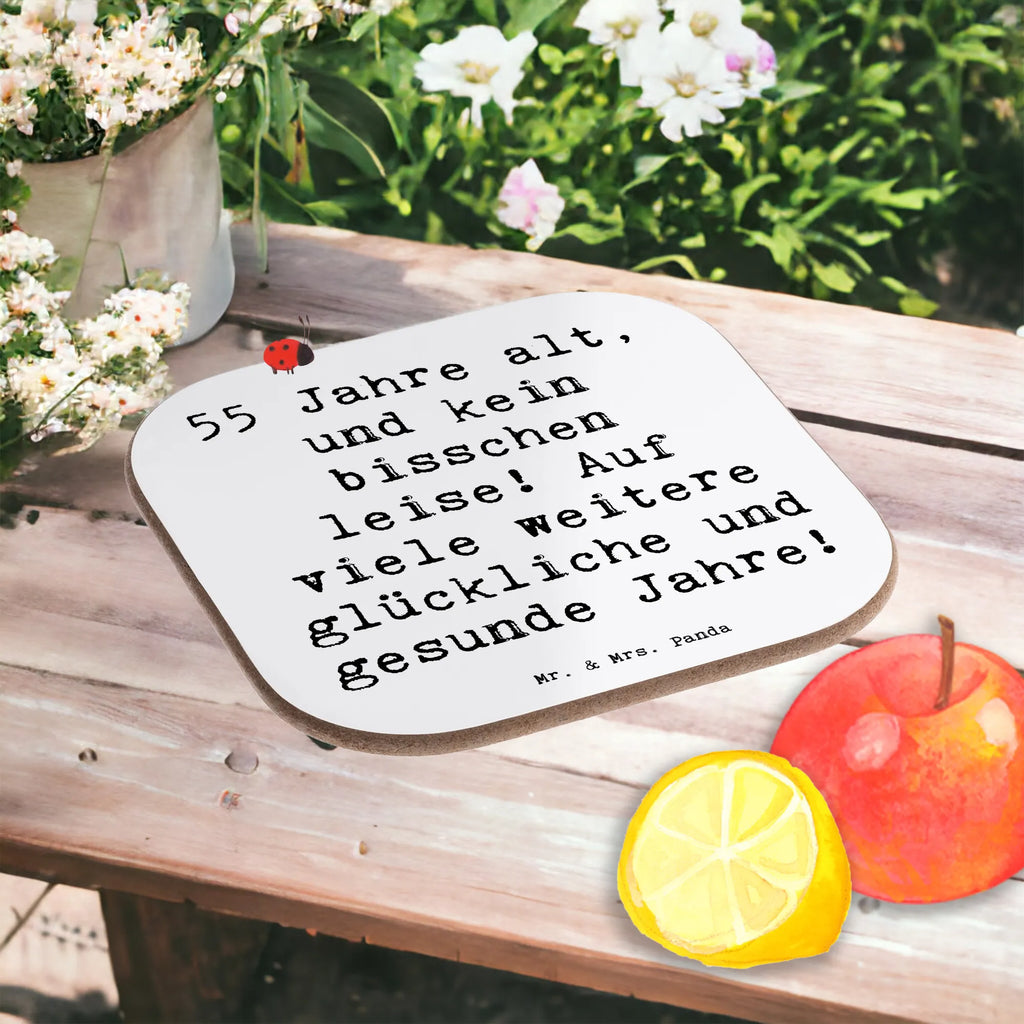 55 Jahre alt,
und kein
bisschen
leise! Auf
viele weitere
glückliche und
gesunde Jahre!
Mr. & Mrs. Panda